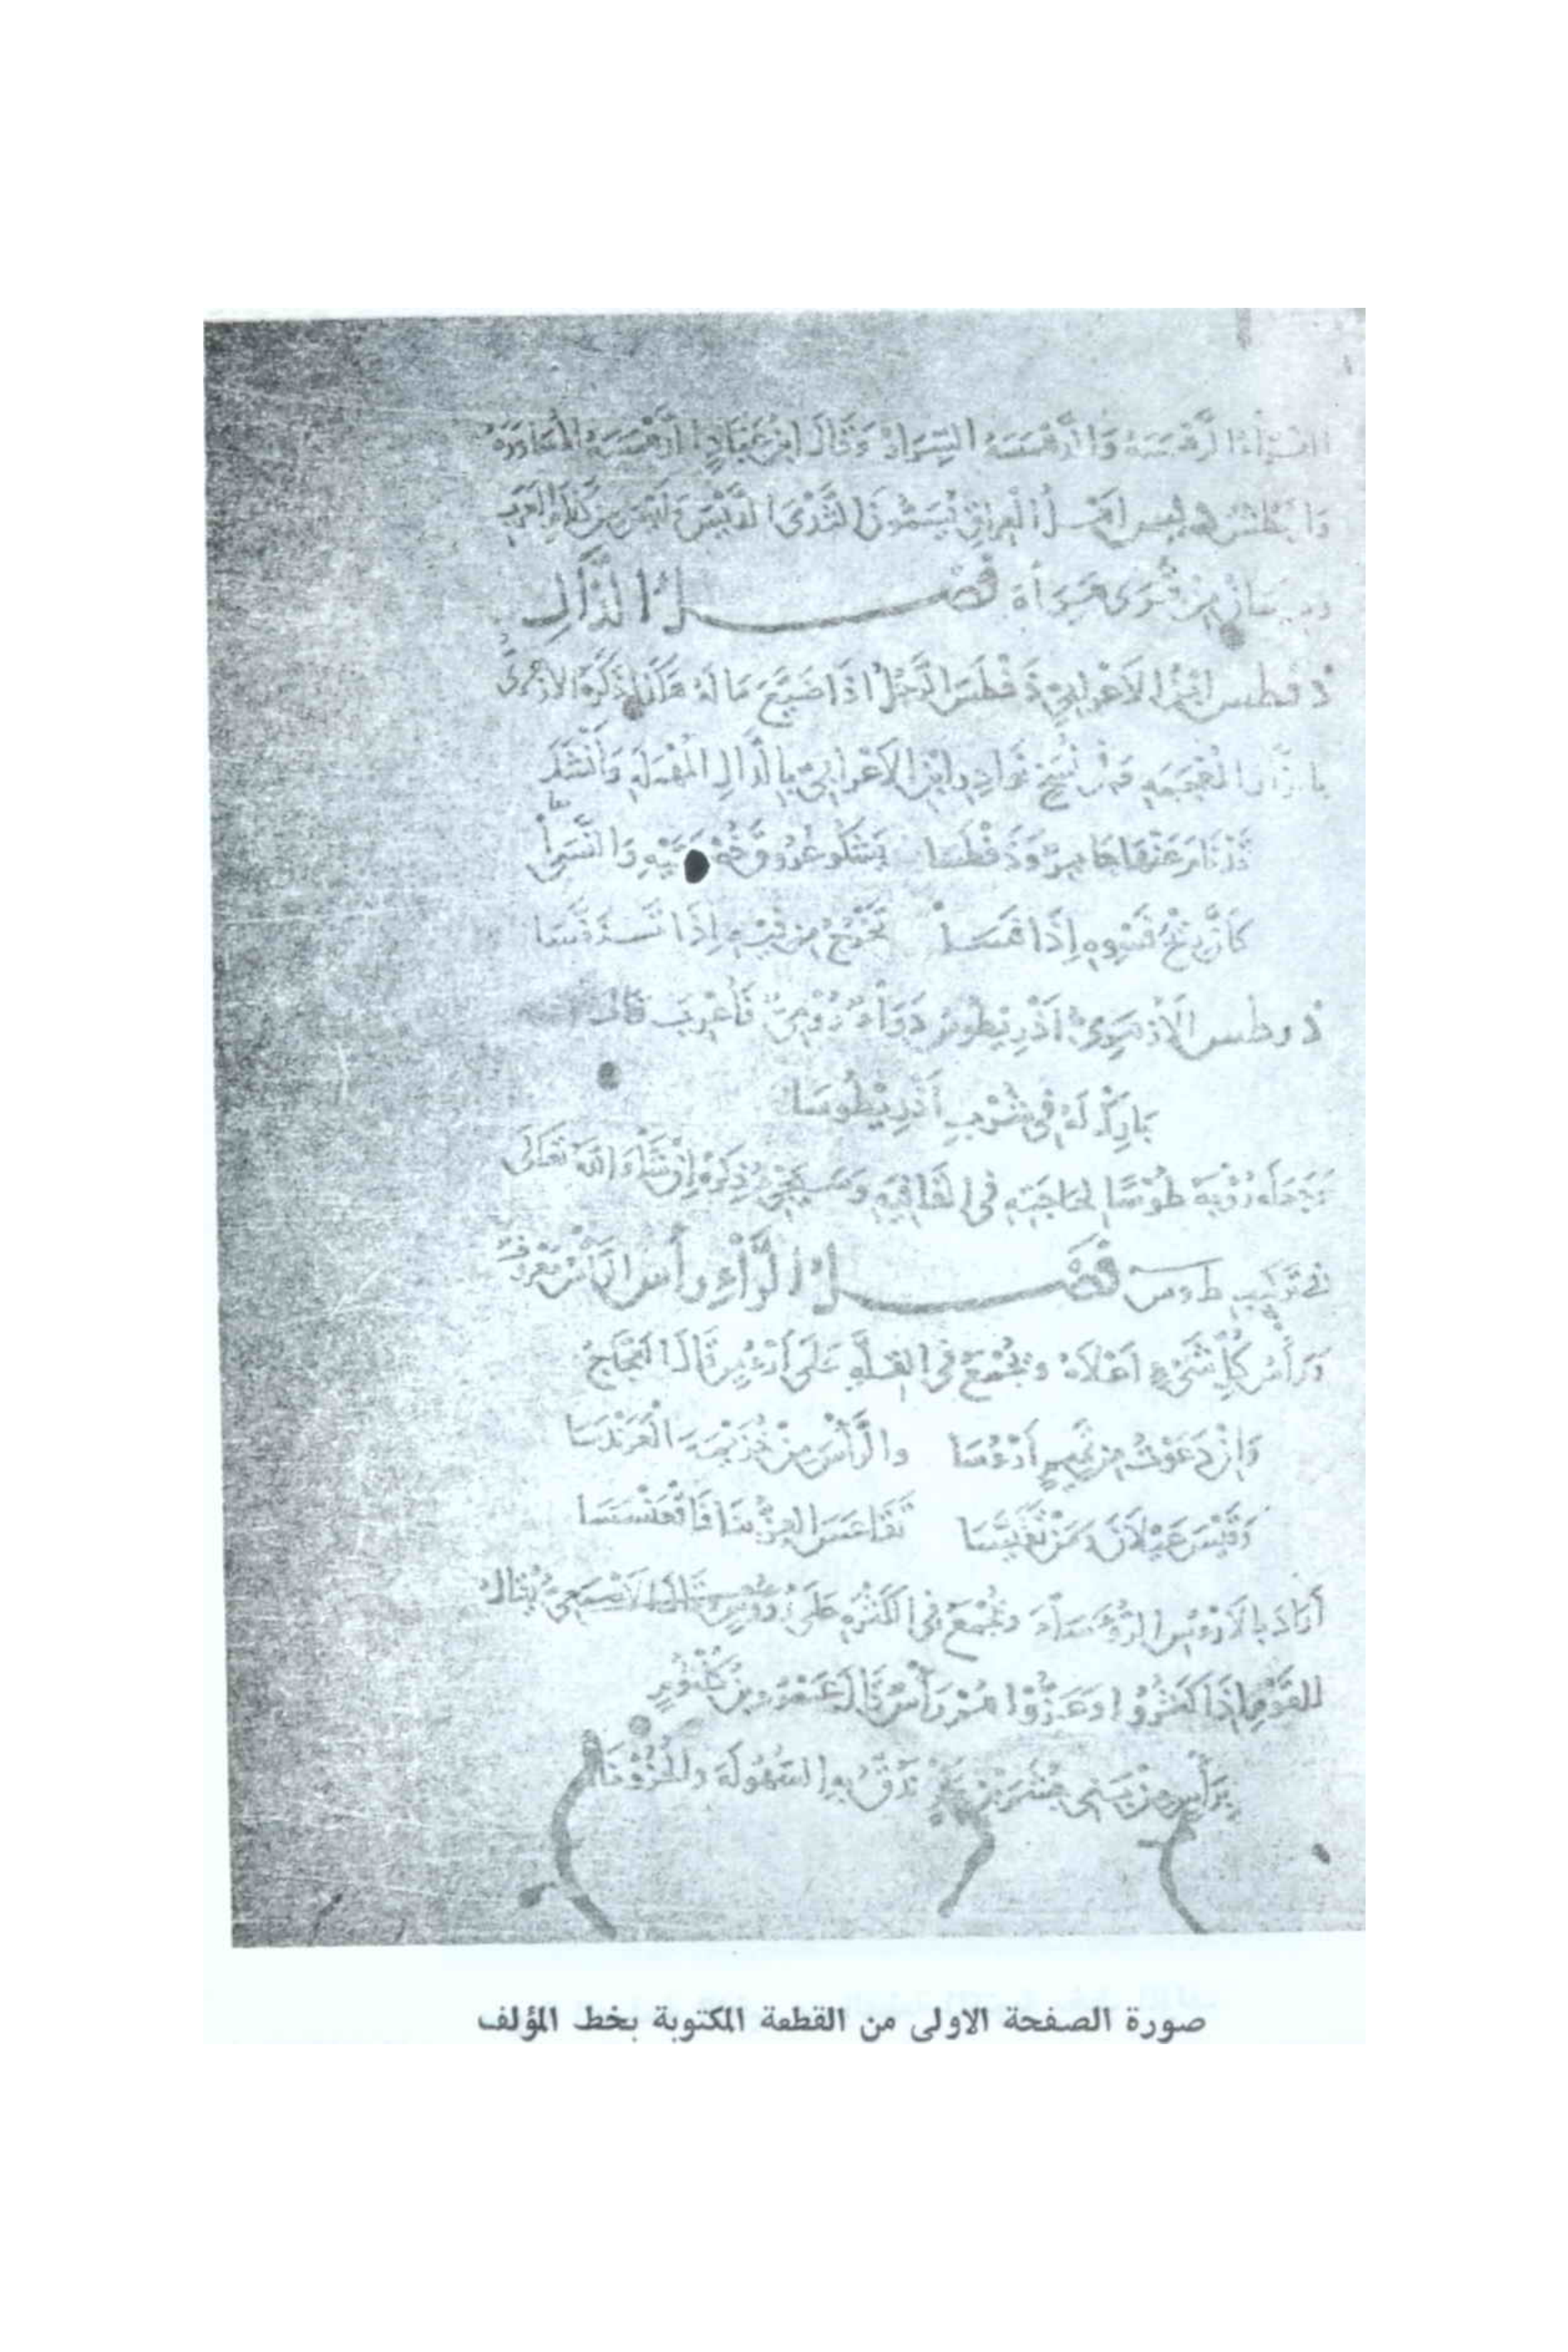 الفراء الدهمسة والرهمسة السرار وقال ابن عباد الدهمسة المساورة
ليس أهل العراق يسمون الثدى الديس وليس من كلام العرب
من قرى هراة فصل الذال
ذفطس ابن الأعرابي ذفطس الرجل اذا ضيع ماله هكذا ذكره الازهرى
بالذال المعجمة في نسخ نوادر ابن الأعرابي بالدال المهملة وأنشد
قد نام عنها جابر ودفطسا يشكو عروق خصيتيه والنسا
كأن ريح فسوه إذا فسا تخرج من فيه إذا تنفسا
ذرطس الأزهري أذريطوس دواء رومي فأعرب قال
بارك له في شرب أذريطوسا
وجعله رؤبة طوسا لحاجته في القافية وسيجيء ذكره إن شاء الله تعالى
في تركيب طوس فصل الراء رأس الرأس معروف
ورأس كل شيء أعلاه ويجمع في القلة على أرؤس قال العجاج
وإن دعوت من تميم أرؤسا والرأس من خزيمة العرندسا
وقيس عيلان ومن تقيسا تقاعس العز بنا فاقعنسسا
أراد بالأرؤس الرؤساء ويجمع في الكثرة على رؤوس قال الأصمعي يقال
للقوم إذا كثروا وعزوا هم رأس قال عمرو بن كلثوم
برأس من بني جشم بن بكر ندق به السهولة والحزونا
صورة الصفحة الاولى من القطعة المكتوبة بخط المؤلف